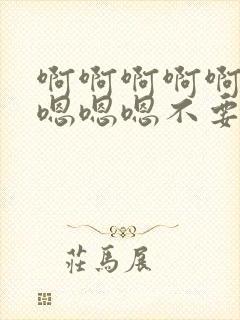 啊啊啊啊啊
嗯嗯嗯不要
莊馬展